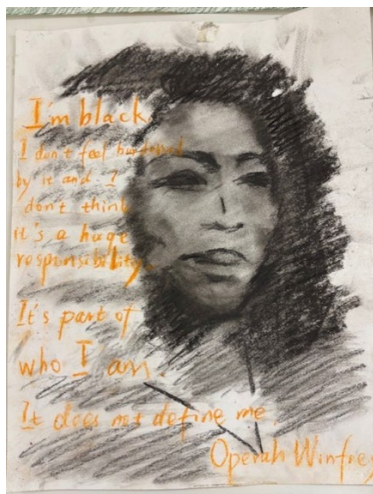 I'm black.
I don't feel burdened
by it and I
don't think
it's a huge
responsibility.
It's part of
who I am.
It does not define me.
Operah Winfrey